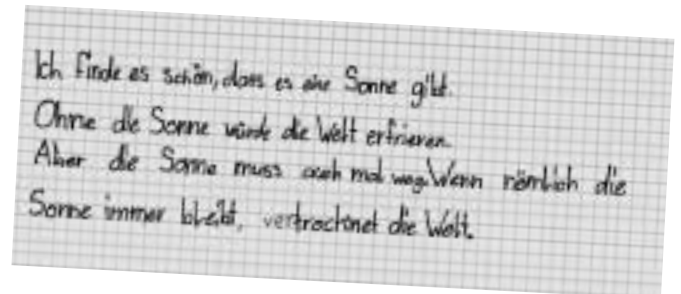 Ich finde es schön, dass es eine Sonne gibt.
Ohne die Sonne würde die Welt erfrieren.
Aber die Sonne muss auch mal weg. Wenn nämlich die
Sonne immer bleibt, vertrocknet die Welt.